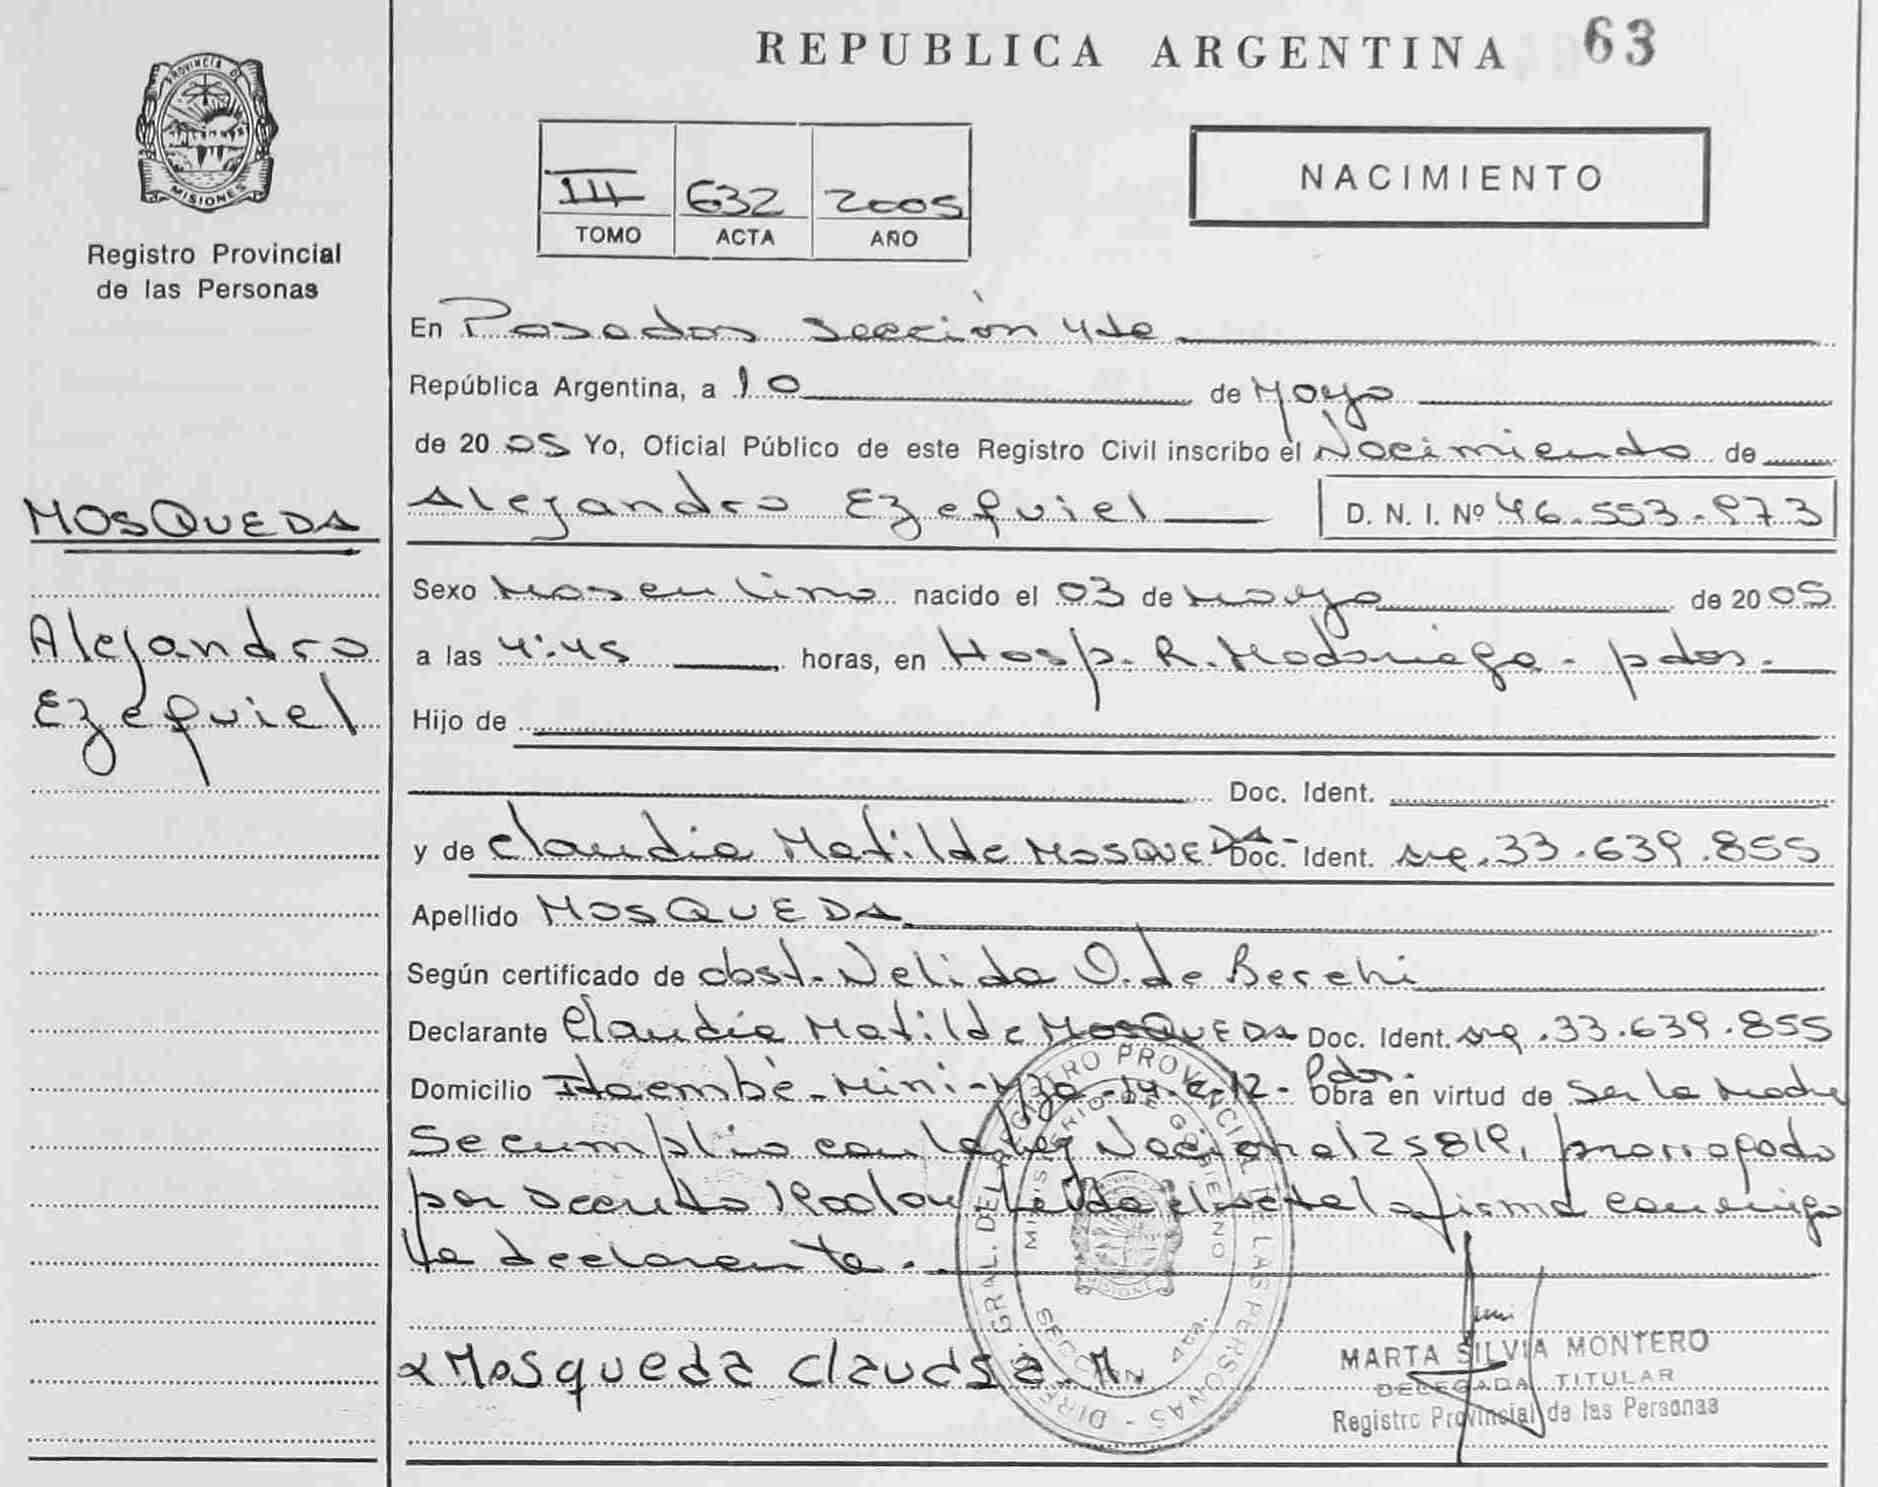 REPUBLICA ARGENTINA 63
PROVINCIA DE
MISIONES
Registro Provincial
de las Personas
III 632 2005
TOMO ACTA AÑO
NACIMIENTO
En Posadas sección 4ta
República Argentina, a 10 de Mayo
de 2005 Yo, Oficial Público de este Registro Civil inscribo el Nacimiento de
MOSQUEDA
Alejandro Ezequiel D. N. I. Nº 46.553.973
Sexo Masculino nacido el 03 de Mayo de 2005
Alejandro
Ezequiel
a las 4:45 horas, en Hosp. R. Madariaga - pdas.
Hijo de
Doc. Ident.
y de Claudia Matilde MOSQUEDA Doc. Ident. 33.639.855
Apellido MOSQUEDA
Según certificado de obst. Nelida O. de Berchi
Declarante Claudia Matilde MOSQUEDA Doc. Ident. 33.639.855
Domicilio Itaembé - Mini - Mza - 14. c. 12 - Pdas. Obra en virtud de ser la madre
Se cumplio con la ley Nacional 25819, prorrogado
por Decreto Leida el acta la firma conmigo
la declarante.
DIREC. GRAL. DEL REGISTRO PROVINCIAL DE LAS PERSONAS
MINISTERIO DE GOBIERNO
SECCION 4ta.
MISIONES
x Mosqueda Claudia. M
MARTA SILVIA MONTERO
DELEGADA TITULAR
Registro Provincial de las Personas